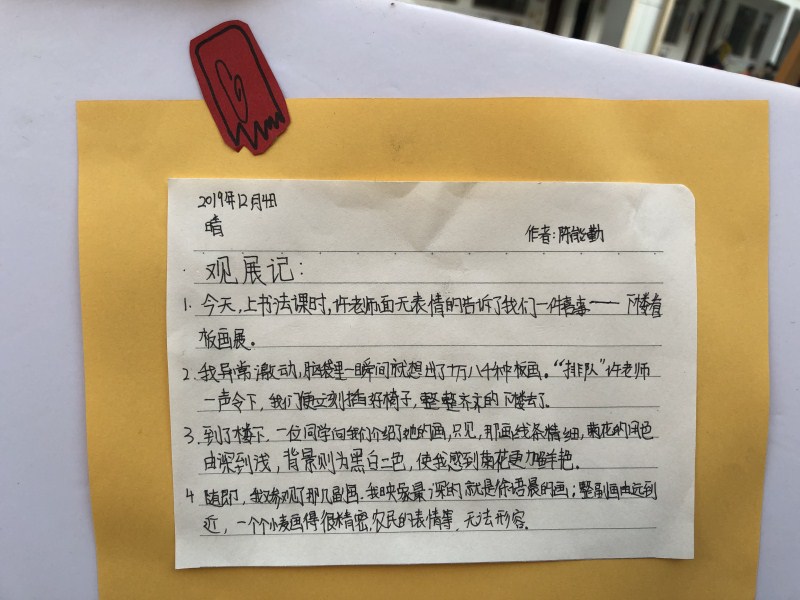 2019年12月4日
晴
作者:陈能勤
观展记:
1. 今天,上书法课时,许老师面无表情的告诉了我们一件喜事——下楼看
板画展。
2. 我异常激动,脑袋里一瞬间就想出了十万八千种板画。“排队”许老师
一声令下,我们便立刻插好椅子,整整齐齐的下楼去了。
3. 到了楼下,一位同学向我们介绍了她的画,只见,那画线条精细,菊花的
由深到浅,背景则为黑白二色,使我感到菊花更加
4. 随即,我参观了那几副画.我映象最深的就是徐语晨的画;整副画由远到
近,一个个小麦画得很精密,农民的表情等,无法形容.